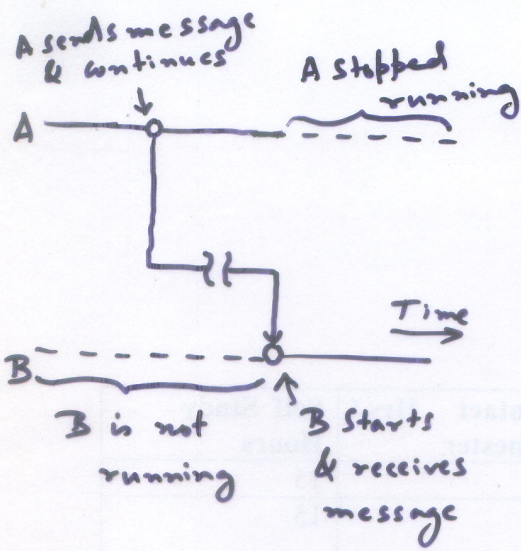 A sends message
& continues
A stopped
running
A
Time
B
B is not
running
B starts
& receives
message
ntact
Study
Hours
15